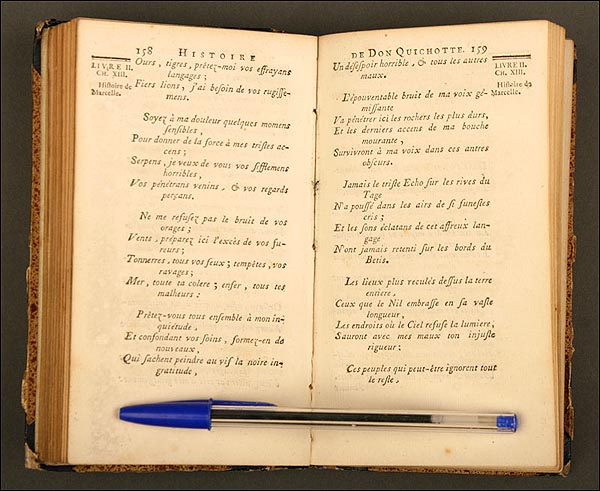 158 HISTOIRE
LIVRE II.
CH. XIII.
Histoire de
Marcelle.
Ours, tigres, prêtez-moi vos effrayans
langages;
Fiers lions, j'ai besoin de vos rugisse-
mens.
Soyez à ma douleur quelques momens
sensibles,
Pour donner de la force à mes tristes ac-
cens;
Serpens, je veux de vous vos sifflemens
horribles,
Vos pénétrans venins, & vos regards
perçans.
Ne me refusez pas le bruit de vos
orages;
Vents, préparez ici l'excès de vos fu-
reurs;
Tonnerres, tous vos feux; tempêtes, vos
ravages;
Mer, toute ta colere; enfer, tous tes
malheurs:
Prêtez-vous tous ensemble à mon in-
quiétude,
Et confondant vos soins, formez-en de
nouveaux,
Qui sachent peindre au vif la noire in-
gratitude,
DE DON QUICHOTTE. 159
LIVRE II.
CH. XIII.
Histoire de
Marcelle.
Un désespoir horrible, & tous les autres
maux.
L'épouventable bruit de ma voix gé-
missante
Va pénétrer ici les rochers les plus durs,
Et les derniers accens de ma bouche
mourante,
Survivront à ma voix dans ces antres
obscurs.
Jamais le triste Echo sur les rives du
Tage
N'a poussé dans les airs de si funestes
cris;
Et les sons éclatans de cet affreux lan-
gage
N'ont jamais retenti sur les bords du
Betis.
Les lieux plus reculés dessus la terre
entiere,
Ceux que le Nil embrasse en sa vaste
longueur,
Les endroits où le Ciel refuse la lumiere,
Sauront avec mes maux ton injuste
rigueur;
Ces peuples qui peut-être ignorent tout
le reste,